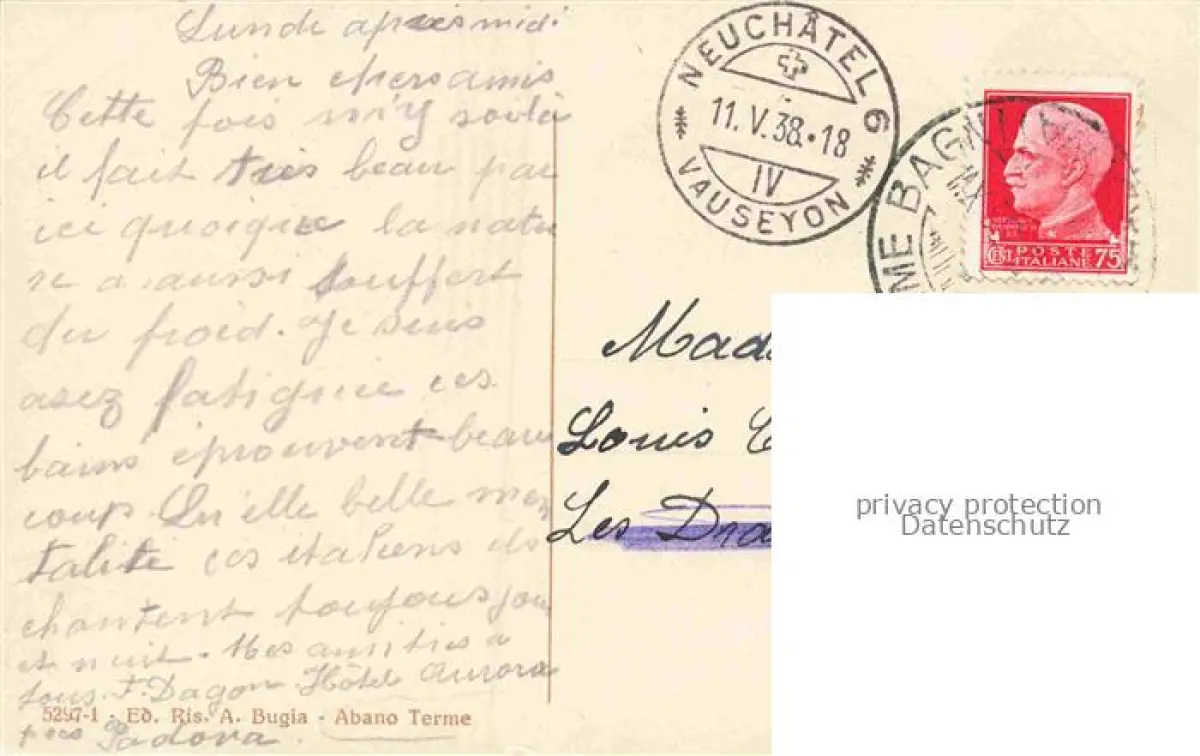 Lunde après midi
Bien chers amis
Cette fois m'y voilà
il fait très beau par
ici quoique la natu
re a aussi souffert
du froid. Je suis
asez fatiguée ces
bains éprouvent beau
coup. Qu'elle belle men
talité ces italiens ils
chantent toujours jour
et nuit. Mes amitiés à
tous. F. Dagon Hôtel Aurora
5297-1 - Ed. Ris. A. Bugia - Abano Terme
Padova.
NEUCHÂTEL 6
11. V. 38. - 18
IV
VAUSEYON
ME BAGNI
POSTE
ITALIANE
CENT. 75
Mad
Louis
Les Dra
privacy protection
Datenschutz